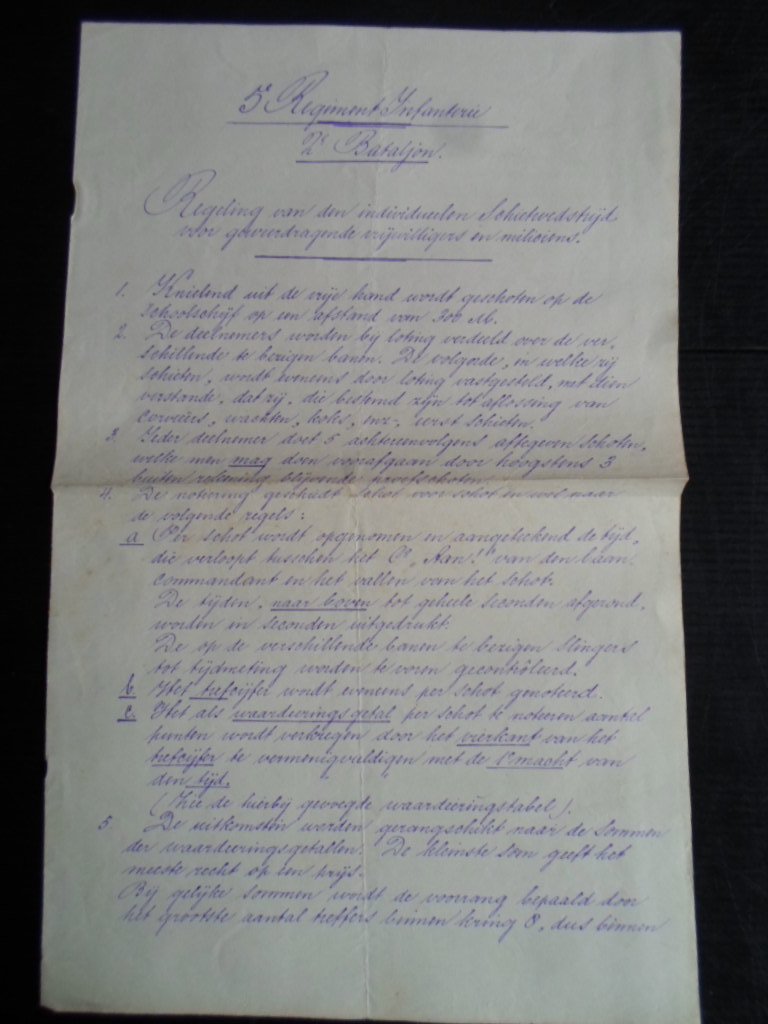 5e Regiment Infanterie
2e Bataljon.
Regeling van den individueelen Schietwedstrijd
voor geweerdragende vrijwilligers en miliciens.
1. Knielend uit de vrije hand wordt geschoten op de
Schoolschijf op een afstand van 300 M.
2. De deelnemers worden bij loting verdeeld over de ver-
schillende te bezigen banen. De volgorde, in welke zij
schieten, wordt eveneens door loting vastgesteld, met dien
verstande, dat zij, die bestemd zijn tot aflossing van
corveeërs, wachten, koks, enz., eerst schieten.
3. Ieder deelnemer doet 5 achtereenvolgens afgegeven schoten,
welke men mag doen voorafgaan door hoogstens 3
buiten rekening blijvende proefschoten.
4. De noteering geschiedt schot voor schot en wel naar
de volgende regels:
a Per schot wordt opgenomen en aangeteekend de tijd,
die verloopt tusschen het C° „Aan!" van den baan
commandant en het vallen van het schot.
De tijden, naar boven tot geheele seconden afgerond,
worden in seconden uitgedrukt.
De op de verschillende banen te bezigen slingers
tot tijdmeting worden te voren gecontrôleerd.
b. Het trefcijfer wordt eveneens per schot genoteerd.
c. Het als waardeeringsgetal per schot te noteeren aantal
punten wordt verkregen door het vierkant van het
trefcijfer te vermenigvuldigen met de macht van
den tijd.
(Zie de hierbij gevoegde waardeeringstabel).
5 De uitkomsten worden gerangschikt naar de sommen
der waardeeringsgetallen. De kleinste som geeft het
meeste recht op een prijs.
Bij gelijke sommen wordt de voorrang bepaald door
het grootste aantal treffers binnen kring 8, dus binnen